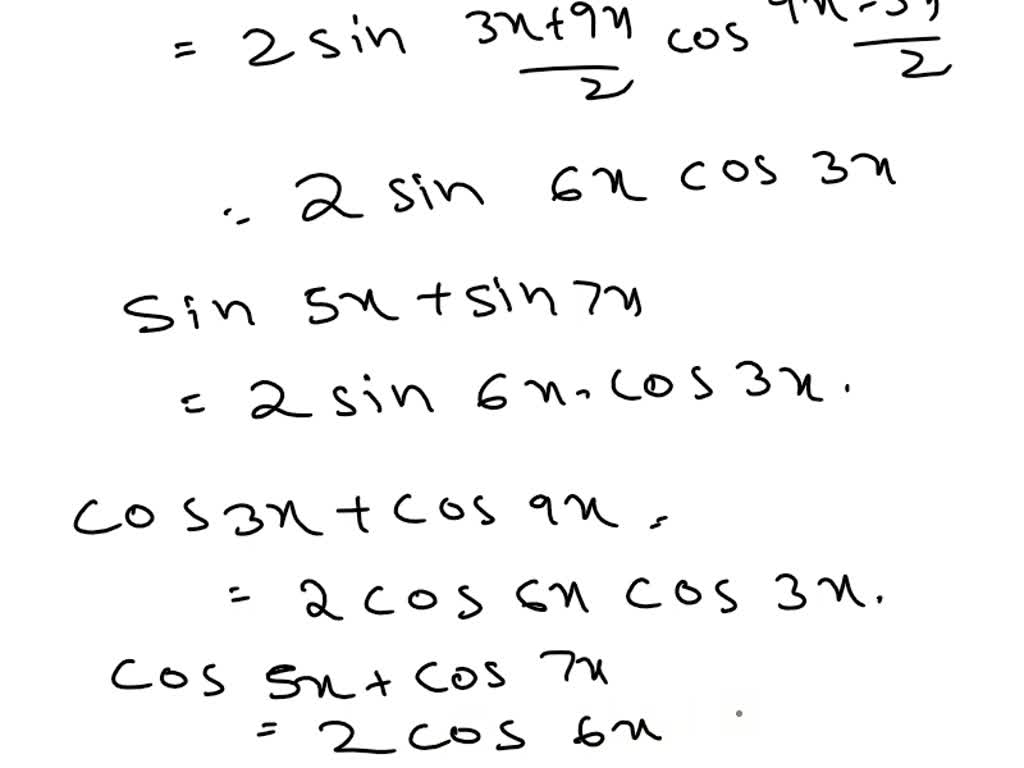 = 2 sin (3x+9x)/2 cos (9x-3x)/2
= 2 sin 6x cos 3x
Sin 5x + sin 7x
= 2 sin 6x. cos 3x.
cos 3x + cos 9x.
= 2 cos 6x cos 3x.
cos 5x + cos 7x
= 2 cos 6x